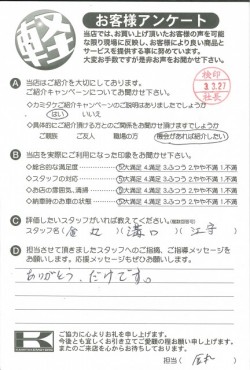 軽
お客様アンケート
当店では、お買い上げ頂いたお客様の声を可能
な限り現場に反映し、お客様により良い商品と
サービスを提供する事に努めています。
大変お手数ですが是非お声をお聞かせ下さい。
検印
3.3.27
社長
A 当店はご紹介を大切にしております。
ご紹介キャンペーンについてお聞かせ下さい。
◇カミタケご紹介キャンペーンのご説明はありましたでしょうか
はい いいえ
◇具体的にご紹介頂ける方とのご関係をお聞かせ頂けますでしょうか
ご親戚 ご友人 職場の方 機会があれば紹介したい
B 当店を実際にご利用になった印象をお聞かせ下さい。
◇総合的な満足度 ⑤大満足 4.満足 3.ふつう 2.やや不満 1.不満
◇スタッフの対応 ⑤大満足 4.満足 3.ふつう 2.やや不満 1.不満
◇お店の雰囲気、清掃 ⑤大満足 4.満足 3.ふつう 2.やや不満 1.不満
◇納車時のお車の状態 ⑤大満足 4.満足 3.ふつう 2.やや不満 1.不満
C 評価したいスタッフがいれば教えてください。(複数回答可)
スタッフ名( 金丸 )( 溝口 )( 江守 )
D 担当させて頂きましたスタッフへのご指摘、ご指導メッセージを
お願いします。応援メッセージもぜひお願いします。
ありがとう。だけです。
ご協力に心よりお礼を申し上げます。
今後とも宜しくお引き立てご愛顧の程お願い申し上げます。
またのご来店を心からお待ちしております。
担当( 金丸 )